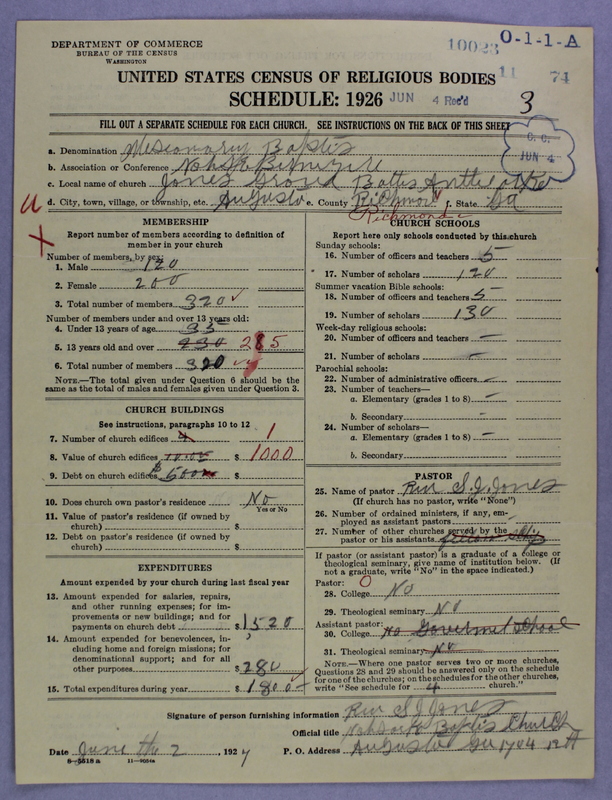 DEPARTMENT OF COMMERCE
BUREAU OF THE CENSUS
WASHINGTON
10023 O-1-1-A
11 74
UNITED STATES CENSUS OF RELIGIOUS BODIES
SCHEDULE: 1926 JUN 4 Rec'd 3
FILL OUT A SEPARATE SCHEDULE FOR EACH CHURCH. SEE INSTRUCTIONS ON THE BACK OF THIS SHEET
C. C.
JUN 4
a. Denomination Missionary Baptis
b. Association or Conference
c. Local name of church Jones Grove Baltis
d. City, town, village, or township, etc. Augusta e. County Richmon f. State Ga
Richmond
MEMBERSHIP
Report number of members according to definition of member in your church
Number of members, by sex:
1. Male 120
2. Female 200
3. Total number of members 320
Number of members under and over 13 years old:
4. Under 13 years of age 35
5. 13 years old and over 230 285
6. Total number of members 320
NOTE.—The total given under Question 6 should be the same as the total of males and females given under Question 3.
CHURCH BUILDINGS
See instructions, paragraphs 10 to 12
7. Number of church edifices 1
8. Value of church edifices $ 1000
9. Debt on church edifices $500 $
10. Does church own pastor's residence No
Yes or No
11. Value of pastor's residence (if owned by church) $
12. Debt on pastor's residence (if owned by church) $
EXPENDITURES
Amount expended by your church during last fiscal year
13. Amount expended for salaries, repairs, and other running expenses; for improvements or new buildings; and for payments on church debt $ 1520
14. Amount expended for benevolences, including home and foreign missions; for denominational support; and for all other purposes $ 280
15. Total expenditures during year $ 1800
CHURCH SCHOOLS
Report here only schools conducted by this church
Sunday schools:
16. Number of officers and teachers 5
17. Number of scholars 120
Summer vacation Bible schools:
18. Number of officers and teachers 5
19. Number of scholars 130
Week-day religious schools:
20. Number of officers and teachers —
21. Number of scholars —
Parochial schools:
22. Number of administrative officers —
23. Number of teachers—
a. Elementary (grades 1 to 8) —
b. Secondary —
24. Number of scholars—
a. Elementary (grades 1 to 8) —
b. Secondary
PASTOR
25. Name of pastor Rev S. J. Jones
(If church has no pastor, write "None")
26. Number of ordained ministers, if any, employed as assistant pastors
27. Number of other churches served by the pastor or his assistants
If pastor (or assistant pastor) is a graduate of a college or theological seminary, give name of institution below. (If not a graduate, write "No" in the space indicated.)
Pastor: O
28. College No
29. Theological seminary No
Assistant pastor:
30. College No Goverment School
31. Theological seminary No
NOTE.—Where one pastor serves two or more churches, Questions 28 and 29 should be answered only on the schedule for one of the churches; on the schedules for the other churches, write "See schedule for 4 church."
Signature of person furnishing information Rev S J Jones
Official title Baptis Church
Date June the 2, 192 P. O. Address Augusta Ga 1704 12
8—5618 a 11—9024a